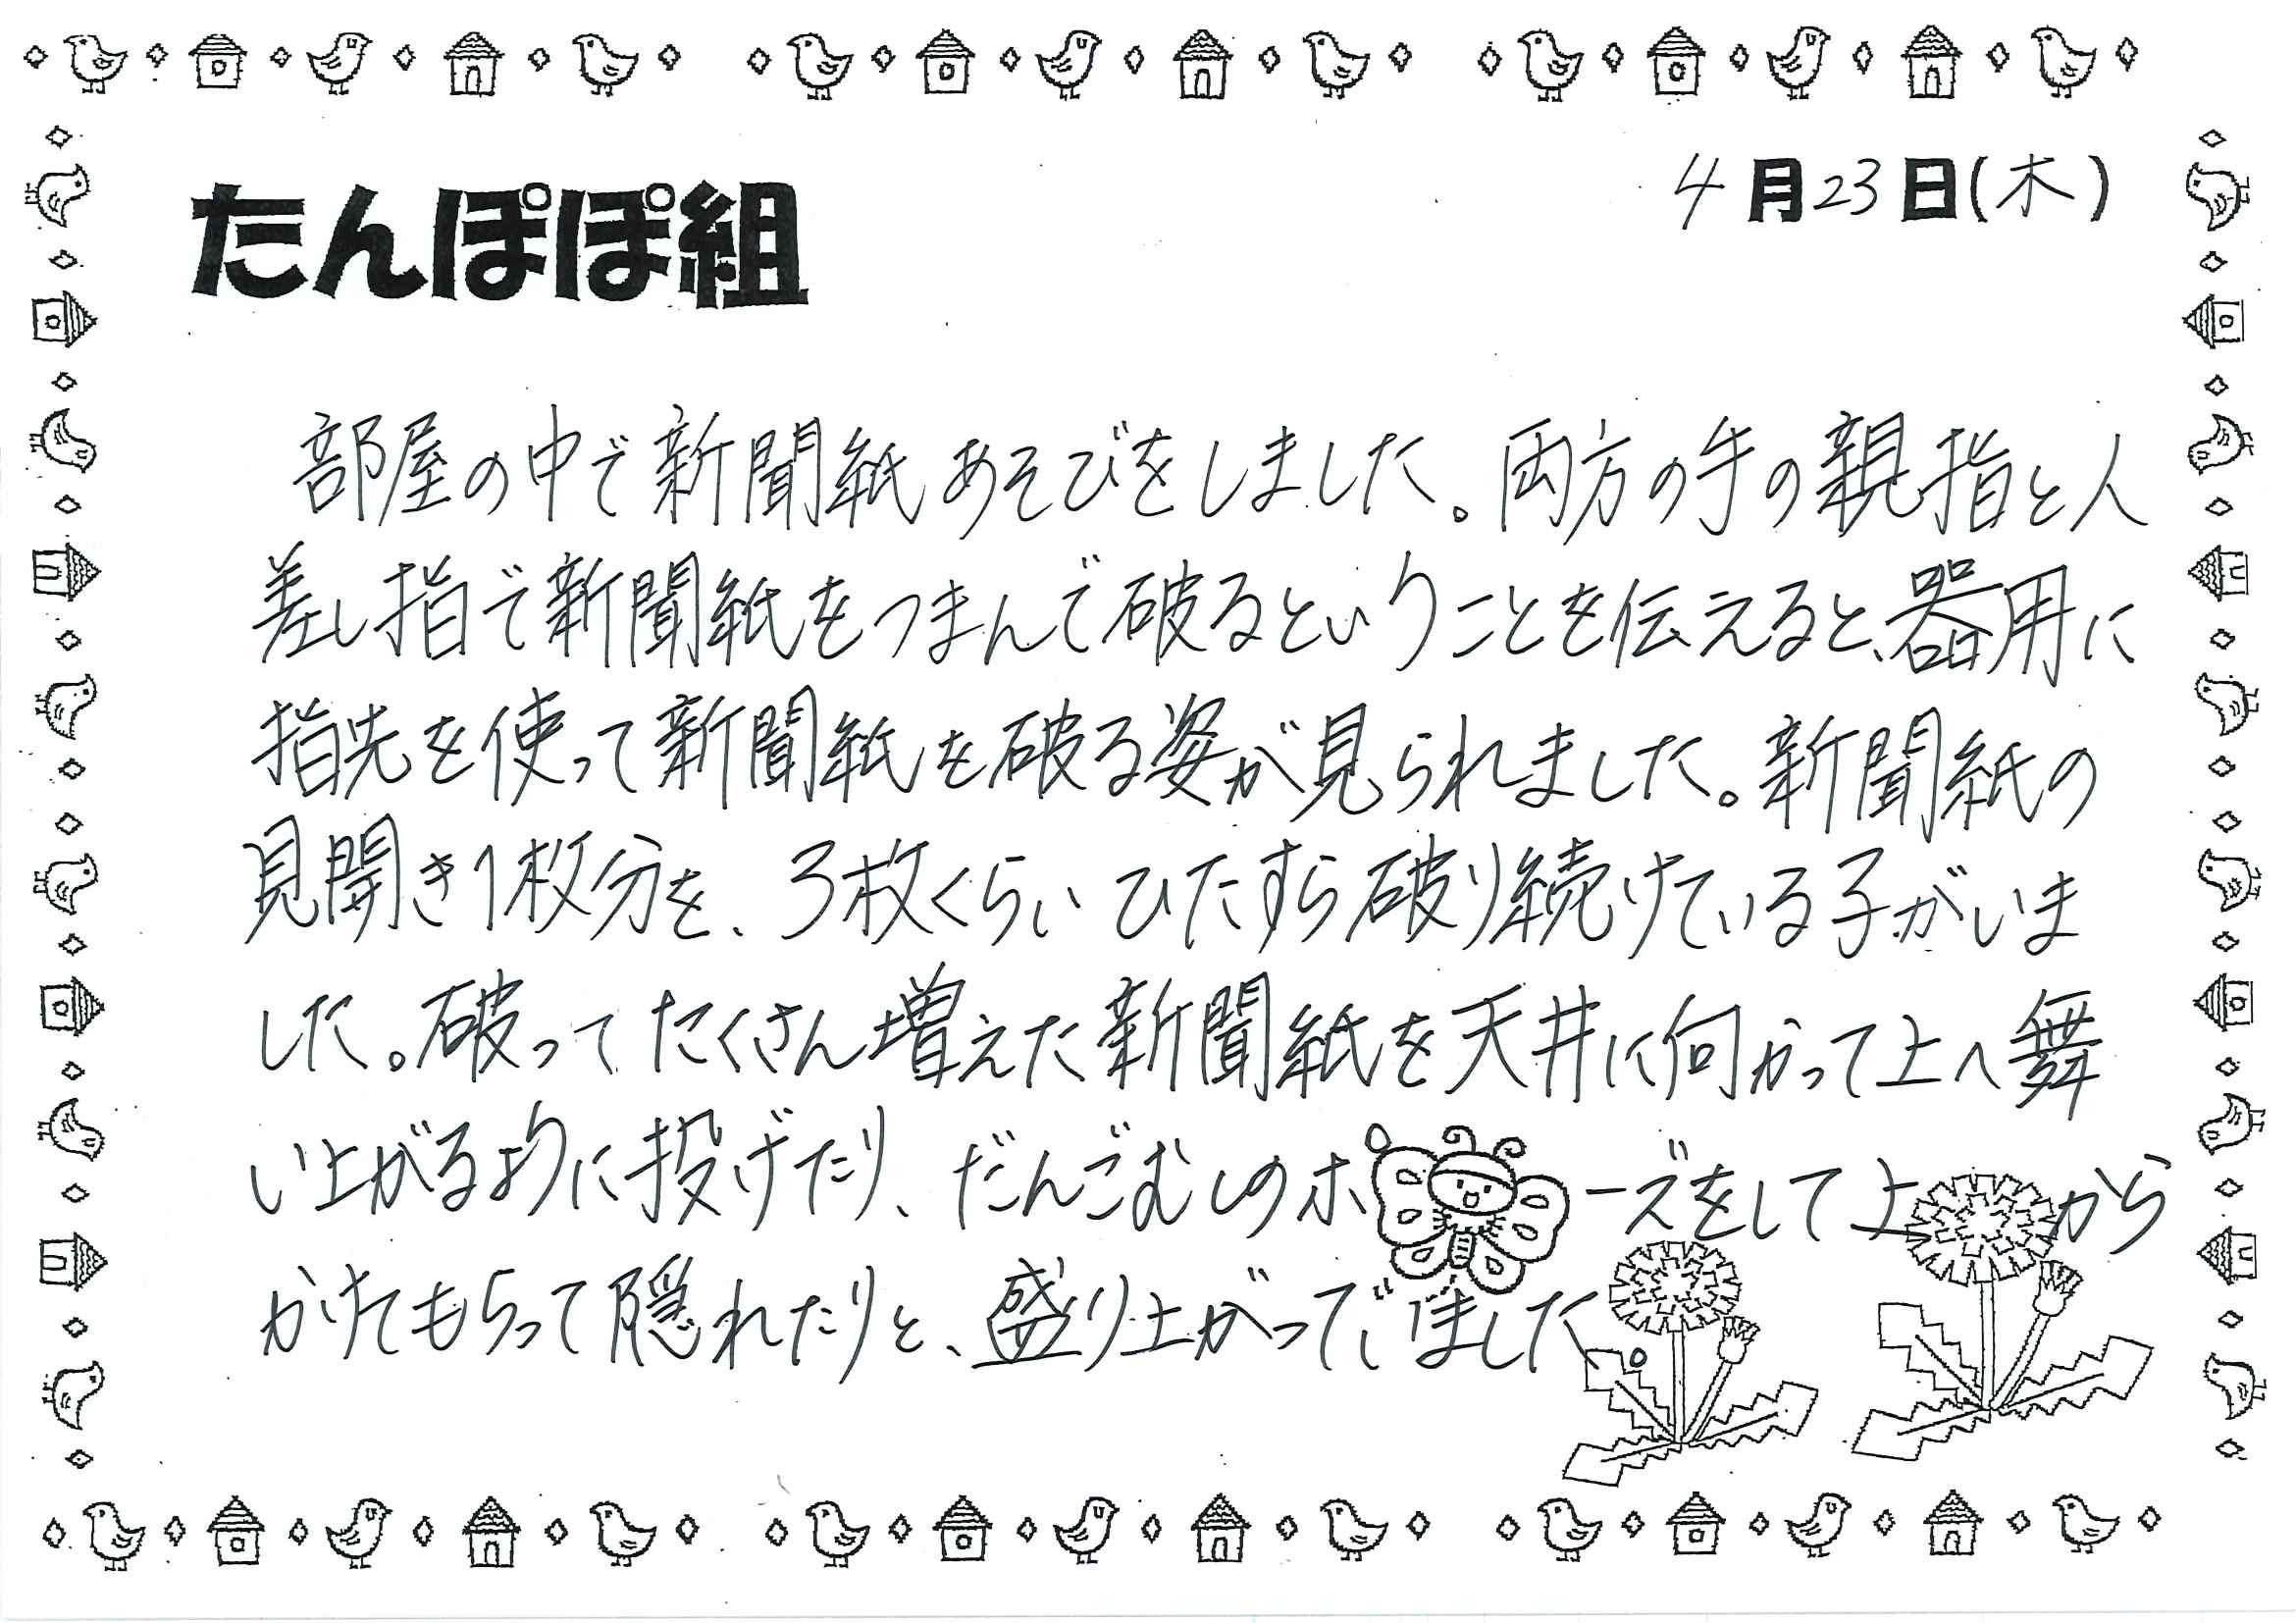 4月23日(木)
たんぽぽ組
部屋の中で新聞紙あそびをしました。両方の手の親指と人
差し指で新聞紙をつまんで破るということを伝えると、器用に
指先を使って新聞紙を破る姿が見られました。新聞紙の
見開き1枚分を、3枚くらいひたすら破り続けている子がいま
した。破ってたくさん増えた新聞紙を天井に向かって上へ舞
い上がるように投げたり、だんごむしのポーズをして上から
かけてもらって隠れたりと、盛り上がっていました。